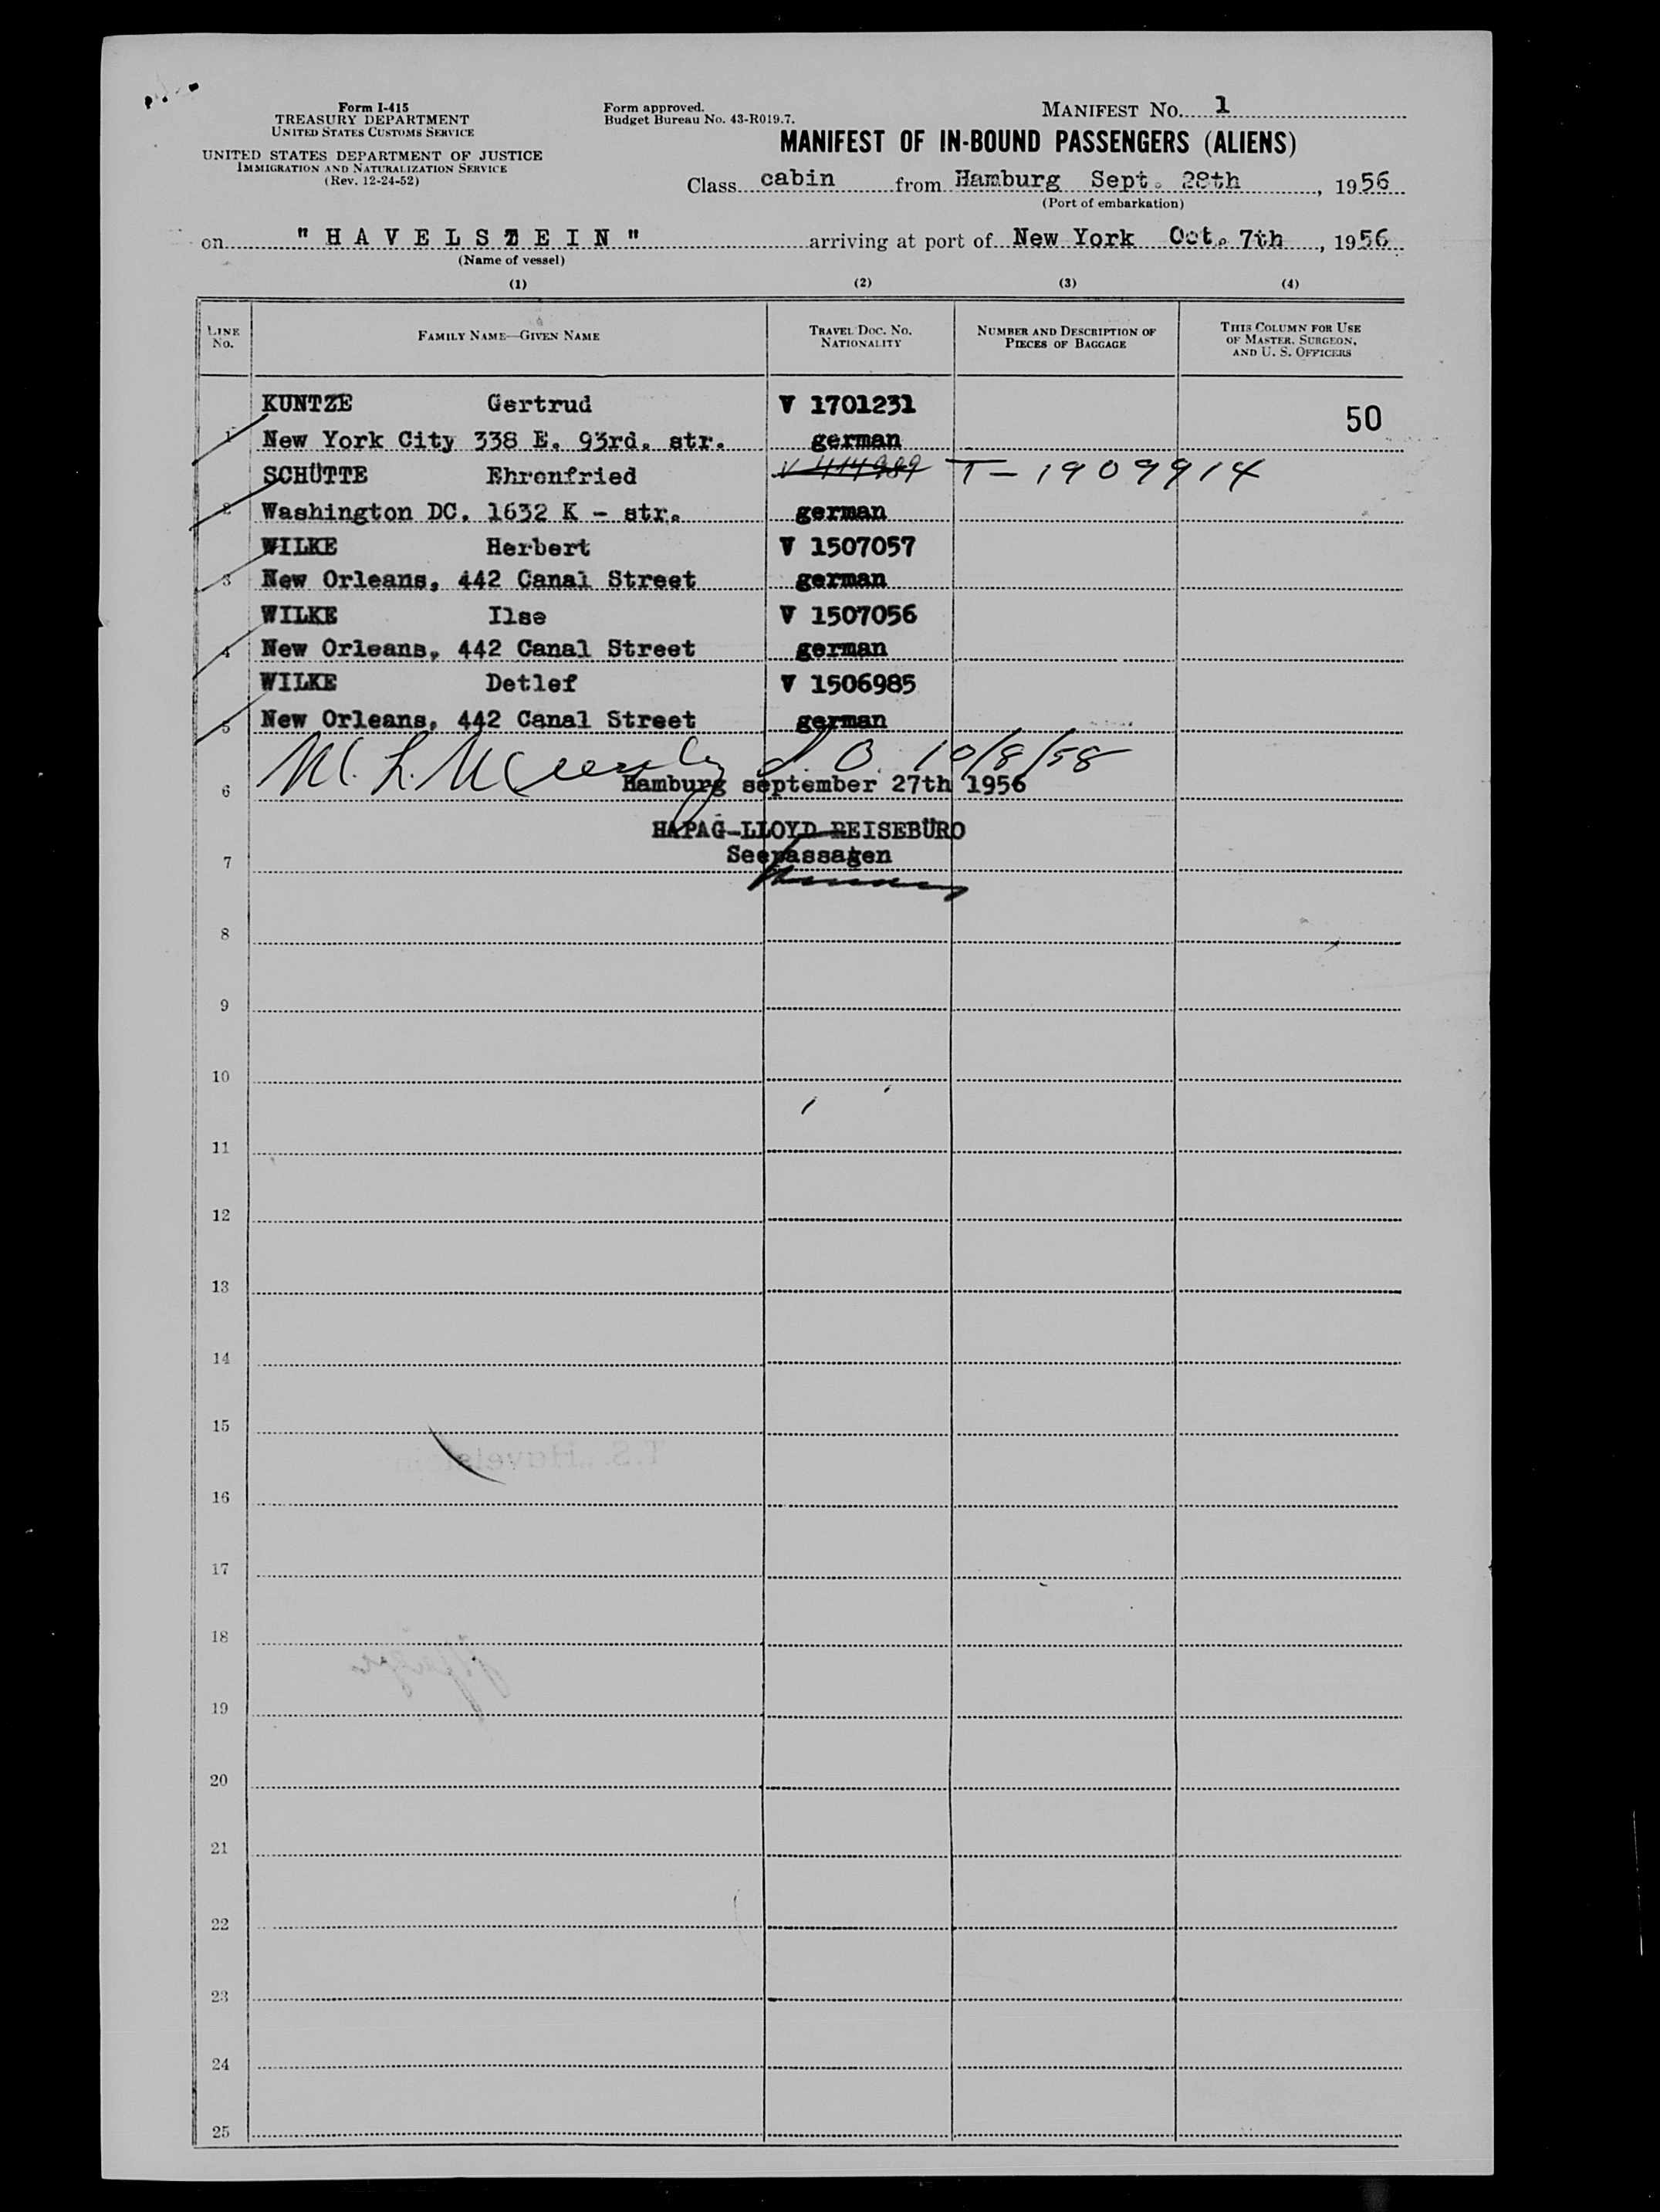 Form I-415
TREASURY DEPARTMENT
UNITED STATES CUSTOMS SERVICE
UNITED STATES DEPARTMENT OF JUSTICE
IMMIGRATION AND NATURALIZATION SERVICE
(Rev. 12-24-52)
Form approved.
Budget Bureau No. 43-R019.7.
MANIFEST NO. 1
MANIFEST OF IN-BOUND PASSENGERS (ALIENS)
Class cabin from Hamburg Sept. 28th, 1956
(Port of embarkation)
on "HAVELSTEIN" arriving at port of New York Oct. 7th, 1956
(Name of vessel)
(1) (2) (3) (4)
LINE No.
FAMILY NAME—GIVEN NAME
TRAVEL DOC. NO. NATIONALITY
NUMBER AND DESCRIPTION OF PIECES OF BAGGAGE
THIS COLUMN FOR USE OF MASTER, SURGEON, AND U. S. OFFICERS
KUNTZE Gertrud V 1701231 50
1 New York City 338 E. 93rd. str. german
SCHÜTTE Ehrenfried T-1909914
2 Washington DC. 1632 K - str. german
WILKE Herbert V 1507057
3 New Orleans, 442 Canal Street german
WILKE Ilse V 1507056
4 New Orleans, 442 Canal Street german
WILKE Detlef V 1506985
5 New Orleans, 442 Canal Street german
10/8/58
6 Hamburg september 27th 1956
HAPAG-LLOYD REISEBÜRO
7 Seepassagen
8
9
10
11
12
13
14
15
16
17
18
19
20
21
22
23
24
25